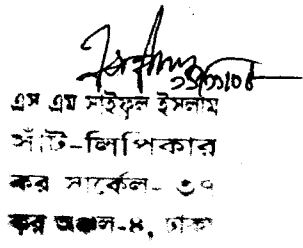 ১১/০১/০৮
এস এম সাইফুল ইসলাম
সাঁট-লিপিকার
কর সার্কেল- ৩৭
কর অঞ্চল-৪, ঢাকা